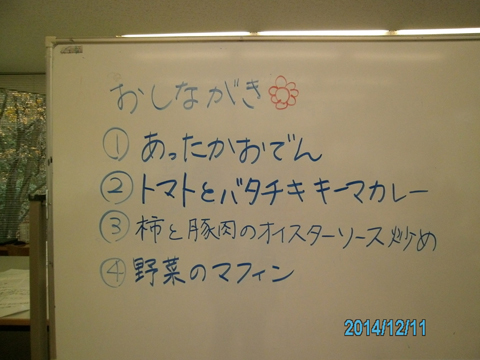 おしながき
① あったかおでん
② トマトとバタチキキーマカレー
③ 柿と豚肉のオイスターソース炒め
④ 野菜のマフィン
2014/12/11